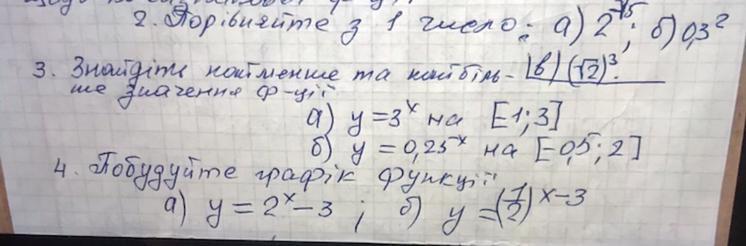 2. Порівняйте з 1 число: а) 2^-√5; б) 0,3^2
3. Знайдіть найменше та найбіль- в) (√2)^3.
ше значення ф-ції
а) y = 3^x на [1; 3]
б) y = 0,25^-x на [-0,5; 2]
4. Побудуйте графік функції
а) y = 2^x - 3 ; б) y = (1/2)^x-3